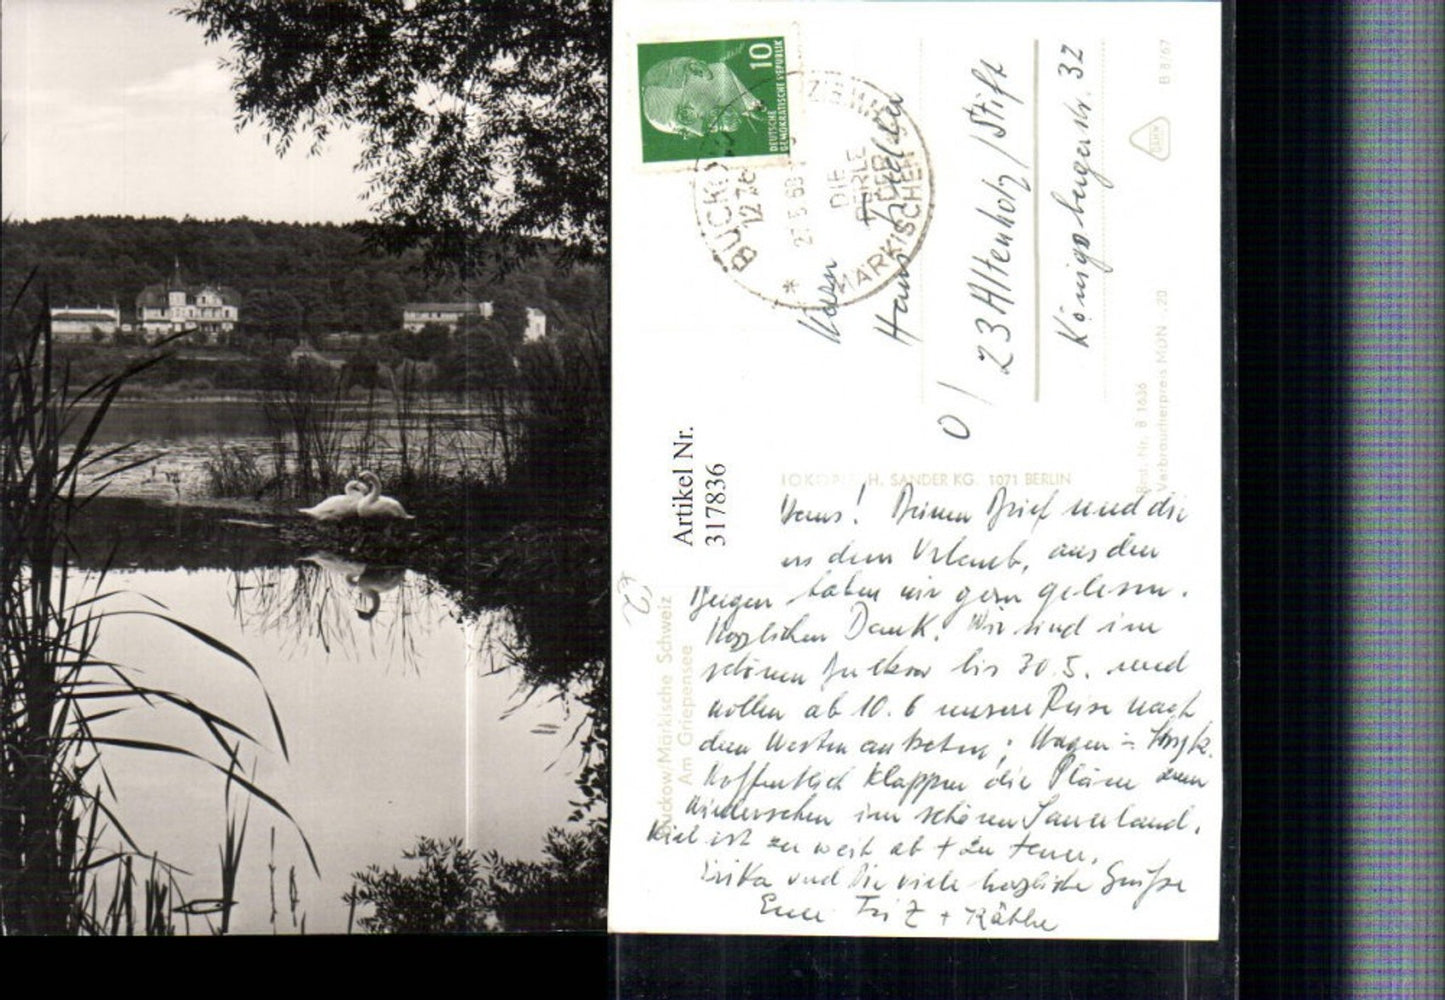 10
DEUTSCHE
DEMOKRATISCHE REPUBLIK
BUCKOW
27.5.68
DIE
PERLE
DER
MÄRKISCHEN
Herrn
Hans
23 Altenholz/Stift
Königsbergerstr. 32
B 8/67
Best. Nr. B 1636
Verbraucherpreis MDN -.20
H. SANDER KG. 1071 BERLIN
Artikel Nr.
317836
Buckow/Märkische Schweiz
Am Griepensee
Hans! Deinen Brief und die
aus dem Urlaub, aus den
haben wir gern gelesen.
Herzlichen Dank. Wir sind im
schönen Buckow bis 30.5. und
wollen ab 10.6 unsere Reise nach
dem Westen antreten, Hagen =
Hoffentlich klappen die Pläne zum
Wiedersehen im schönen Sauerland.
Kiel ist zu weit ab + zu teuer.
Erika und Dir viele herzliche Grüße
Eure Fritz + Käthe